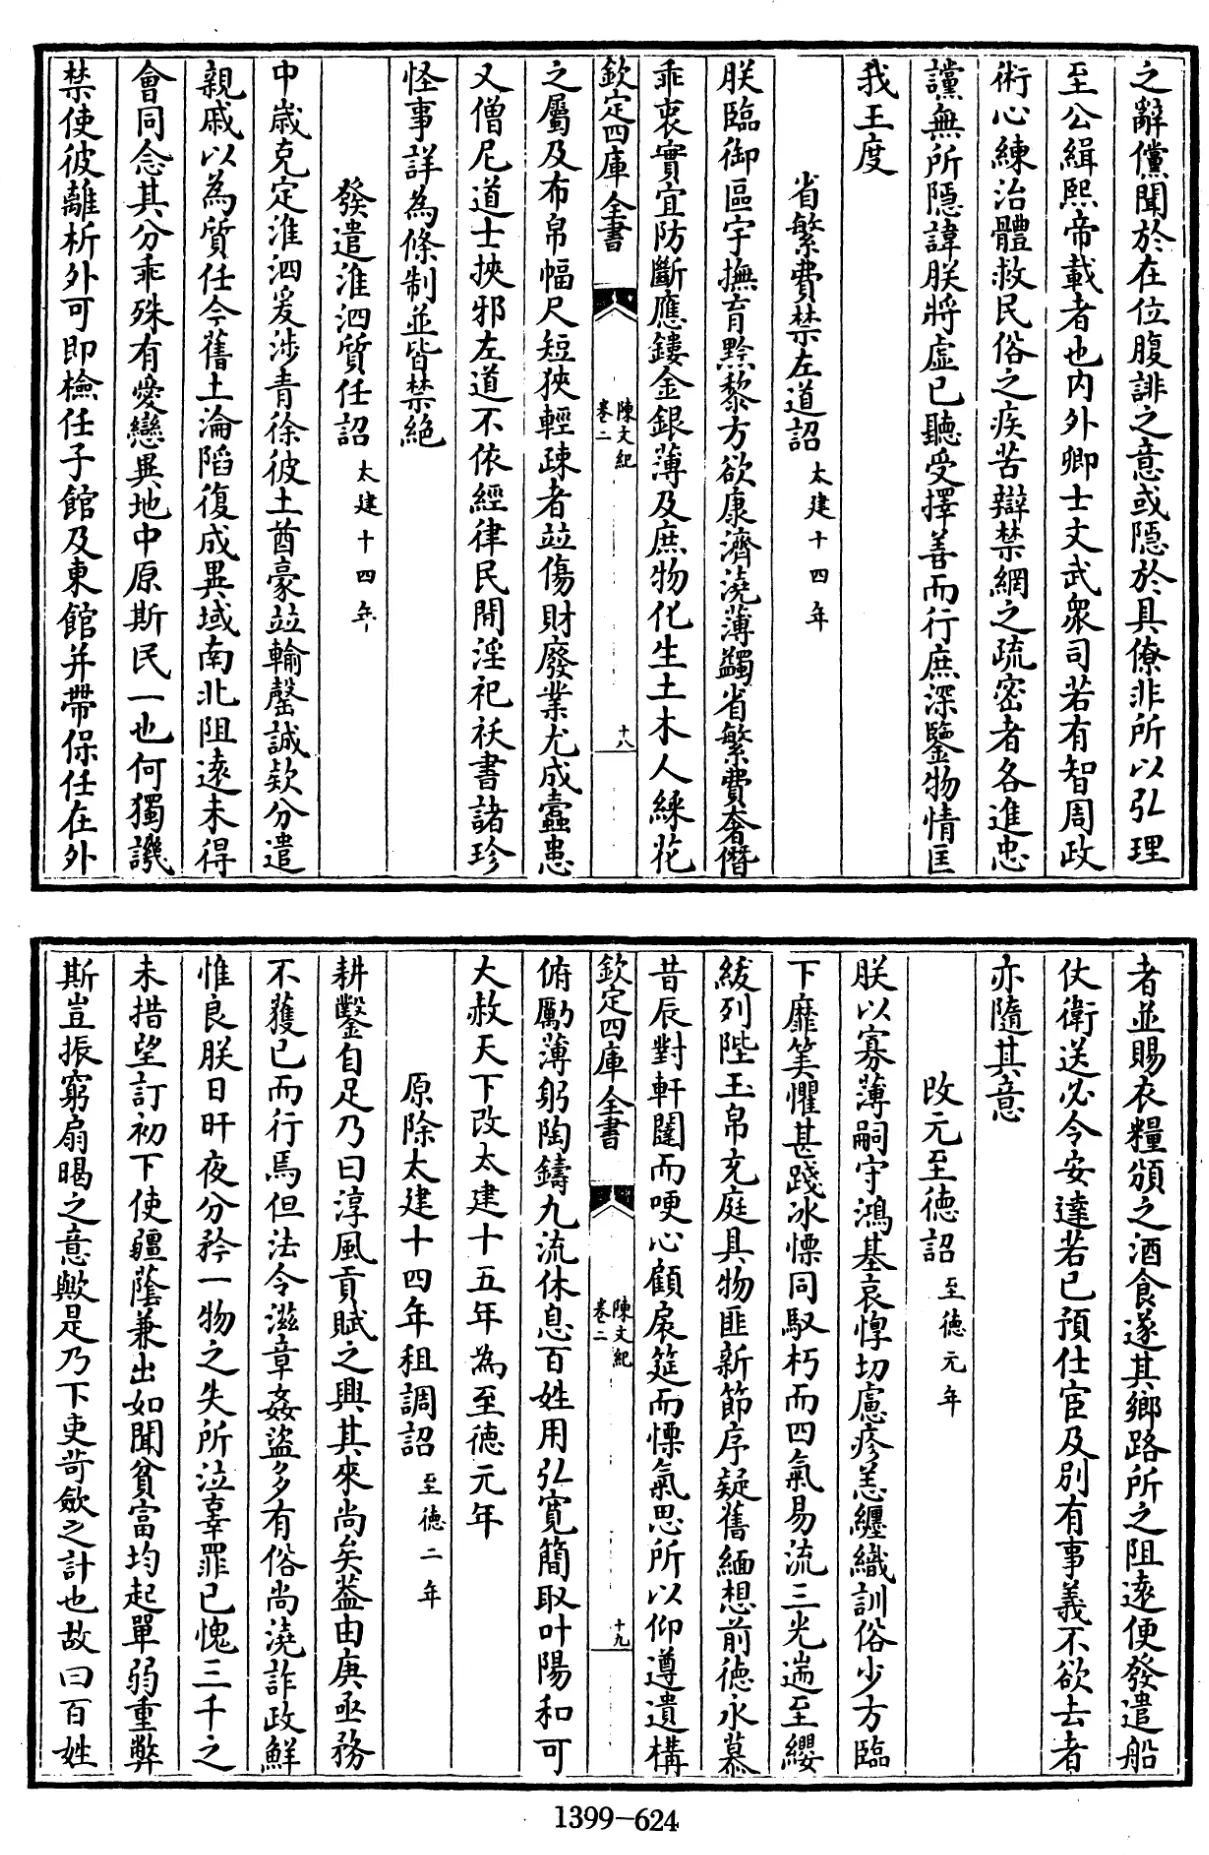 之辭儻聞於在位腹誹之意或隱於具僚非所以弘理
至公緝熙帝載者也内外卿士文武衆司若有智周政
術心練治體救民俗之疾苦辯禁網之疏密者各進忠
讜無所隱諱朕將虚己聽受擇善而行庶深鑒物情匡
我王度
省繁費禁左道詔 太建十四年
朕臨御區宇撫育黔黎方欲康濟澆薄蠲省繁費奢僭
乖衷實宜防斷應鏤金銀薄及庶物化生土木人綵花
欽定四庫全書
陳文紀
卷二
十八
之屬及布帛幅尺短狹輕疎者竝傷財廢業尤成蠹患
又僧尼道士挾邪左道不依經律民間淫祀祅書諸珍
怪事詳為條制並皆禁絶
發遣淮泗質任詔 太建十四年
中歲克定淮泗爰涉青徐彼土酋豪竝輸罄誠款分遣
親戚以為質任今舊土淪陷復成異域南北阻遠未得
會同念其分乖殊有愛戀異地中原斯民一也何獨譏
禁使彼離析外可即檢任子館及東館并帶保任在外
者並賜衣糧頒之酒食遂其鄉路所之阻遠便發遣船
仗衛送必令安達若已預仕宦及别有事義不欲去者
亦隨其意
改元至德詔 至德元年
朕以寡薄嗣守鴻基哀惸切慮疹恙纏織訓俗少方臨
下靡筭懼甚踐冰慄同馭朽而四氣易流三光遄至纓
紱列陛玉帛充庭具物匪新節序疑舊緬想前德永慕
昔辰對軒闥而哽心顧扆筵而慄氣思所以仰遵遺構
欽定四庫全書
陳文紀
卷二
十九
俯勵薄躬陶鑄九流休息百姓用弘寛簡取叶陽和可
大赦天下改太建十五年為至德元年
原除太建十四年租調詔 至德二年
耕鑿自足乃曰淳風貢賦之興其來尚矣葢由庚亟務
不獲已而行焉但法令滋章姦盜多有俗尚澆詐政鮮
惟良朕日旰夜分矜一物之失所泣辜罪已愧三千之
未措望訂初下使疆蔭兼出如聞貧富均起單弱重弊
斯豈振窮扇暍之意歟是乃下吏苛歛之計也故曰百姓
1399—624